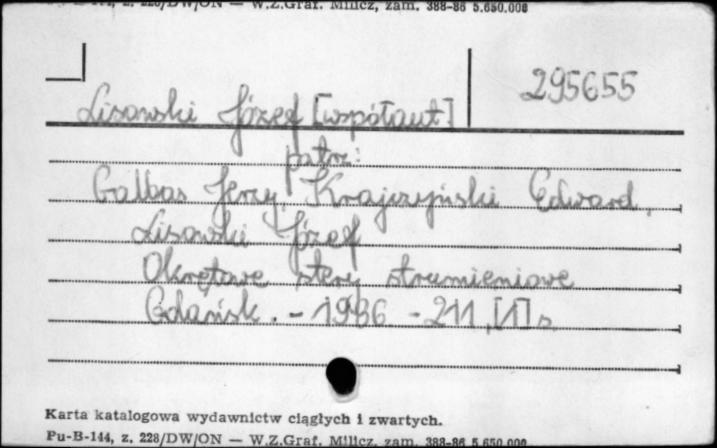 Pu-B-144, z. 228/DW/ON — W.Z.Graf. Milicz, zam. 388-86 5.650.000
295655
Lisowski Józef [współaut]
patrz:
Galbas Jerzy, Krajczyński Edward,
Lisowski Józef
Okrętowe stery strumieniowe
Gdańsk. - 1986 - 211, [1] s.
Karta katalogowa wydawnictw ciągłych i zwartych.
Pu-B-144, z. 228/DW/ON — W.Z.Graf. Milicz, zam. 388-86 5.650.000